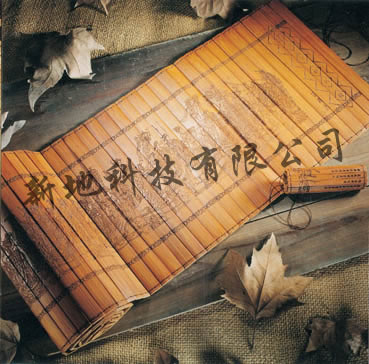 新地科技有限公司